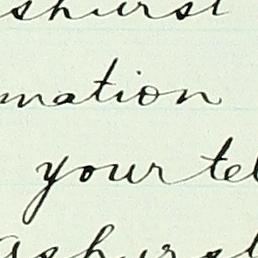 shurst
mation
your tel
ashurst